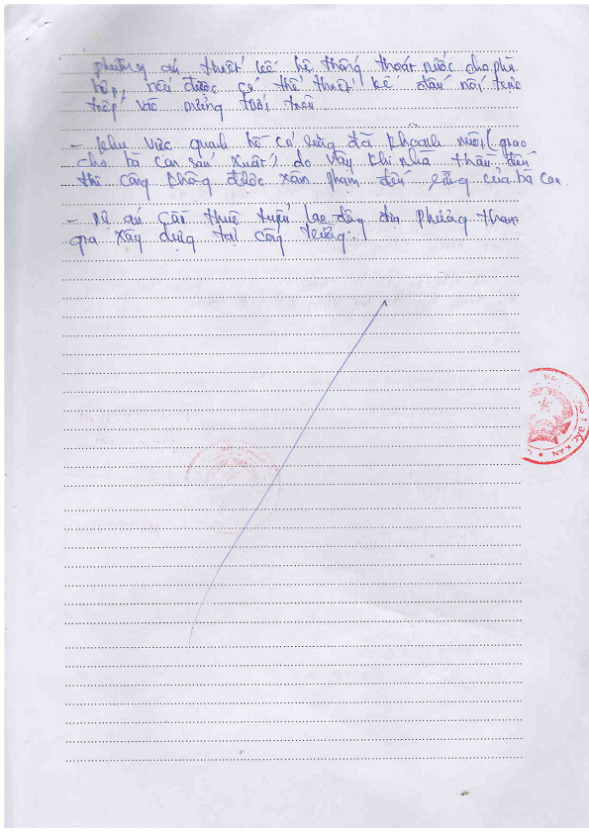 phương án thiết kế hệ thống thoát nước cho phù
hợp, nếu được có thể thiết kế đấu nối trực
tiếp vào mương
- Khu vực quanh hồ có rừng đã khoanh nuôi (giao
cho bà con sản xuất) do vậy khi nhà thầu đến
thi công không được xâm phạm đến rừng của bà con.
- Dự án cần thuê tuyển lao động địa phương tham
gia xây dựng tại công trường.
BẮC KẠN